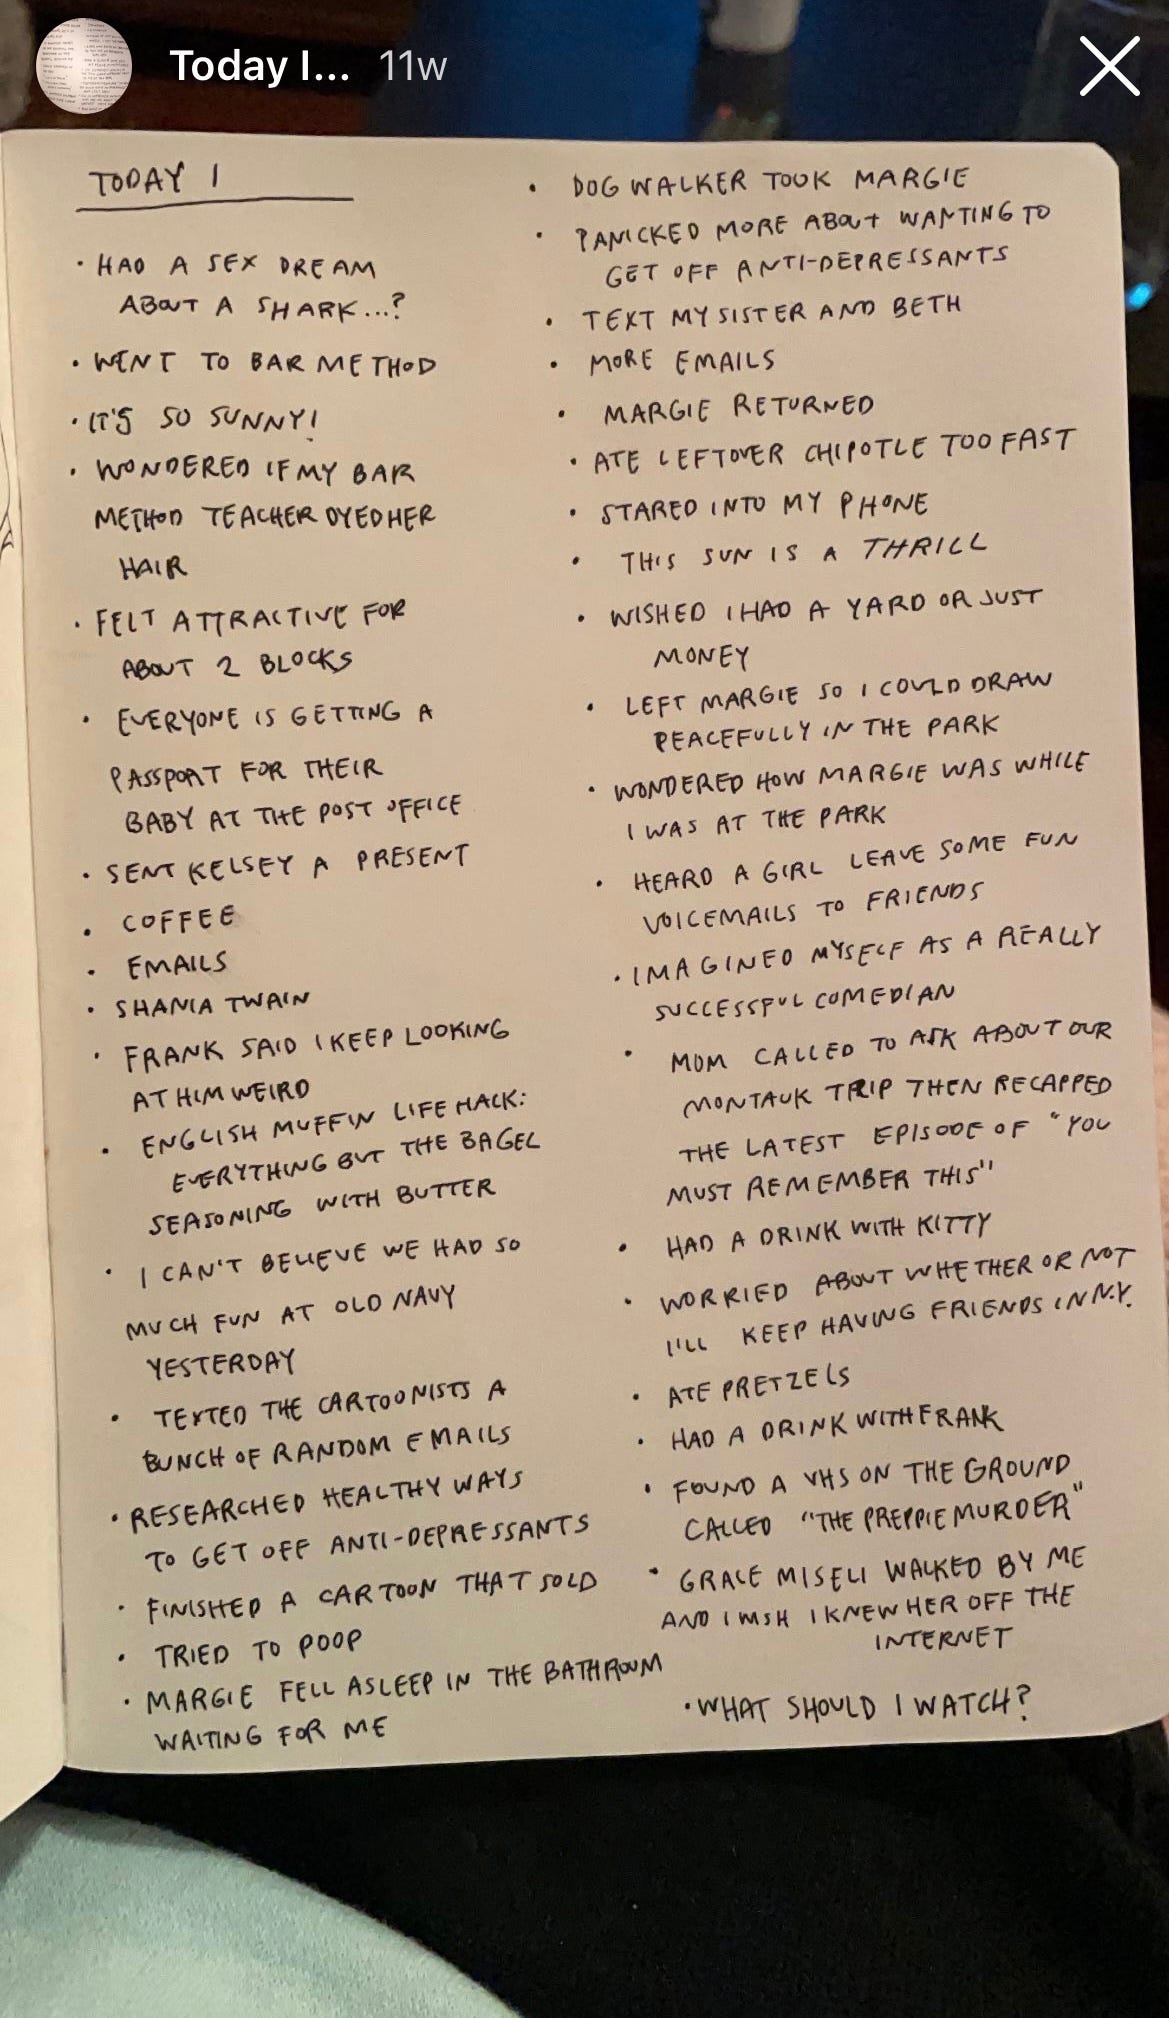 Today I... 11w
TODAY I
• HAD A SEX DREAM
ABOUT A SHARK...?
• WENT TO BAR METHOD
• IT'S SO SUNNY!
• WONDERED IF MY BAR
METHOD TEACHER DYED HER
HAIR
• FELT ATTRACTIVE FOR
ABOUT 2 BLOCKS
• EVERYONE IS GETTING A
PASSPORT FOR THEIR
BABY AT THE POST OFFICE
• SENT KELSEY A PRESENT
• COFFEE
• EMAILS
• SHANIA TWAIN
• FRANK SAID I KEEP LOOKING
AT HIM WEIRD
• ENGLISH MUFFIN LIFE HACK:
EVERYTHING BUT THE BAGEL
SEASONING WITH BUTTER
• I CAN'T BELIEVE WE HAD SO
MUCH FUN AT OLD NAVY
YESTERDAY
• TEXTED THE CARTOONISTS A
BUNCH OF RANDOM EMAILS
• RESEARCHED HEALTHY WAYS
TO GET OFF ANTI-DEPRESSANTS
• FINISHED A CARTOON THAT SOLD
• TRIED TO POOP
• MARGIE FELL ASLEEP IN THE BATHROOM
WAITING FOR ME
• DOG WALKER TOOK MARGIE
• PANICKED MORE ABOUT WANTING TO
GET OFF ANTI-DEPRESSANTS
• TEXT MY SISTER AND BETH
• MORE EMAILS
• MARGIE RETURNED
• ATE LEFTOVER CHIPOTLE TOO FAST
• STARED INTO MY PHONE
• THIS SUN IS A THRILL
• WISHED I HAD A YARD OR JUST
MONEY
• LEFT MARGIE SO I COULD DRAW
PEACEFULLY IN THE PARK
• WONDERED HOW MARGIE WAS WHILE
I WAS AT THE PARK
• HEARD A GIRL LEAVE SOME FUN
VOICEMAILS TO FRIENDS
• IMAGINED MYSELF AS A REALLY
SUCCESSFUL COMEDIAN
• MOM CALLED TO ASK ABOUT OUR
MONTAUK TRIP THEN RECAPPED
THE LATEST EPISODE OF "YOU
MUST REMEMBER THIS"
• HAD A DRINK WITH KITTY
• WORRIED ABOUT WHETHER OR NOT
I'LL KEEP HAVING FRIENDS IN N.Y.
• ATE PRETZELS
• HAD A DRINK WITH FRANK
• FOUND A VHS ON THE GROUND
CALLED "THE PREPPIE MURDER"
• GRACE MISELI WALKED BY ME
AND I WISH I KNEW HER OFF THE
INTERNET
• WHAT SHOULD I WATCH?